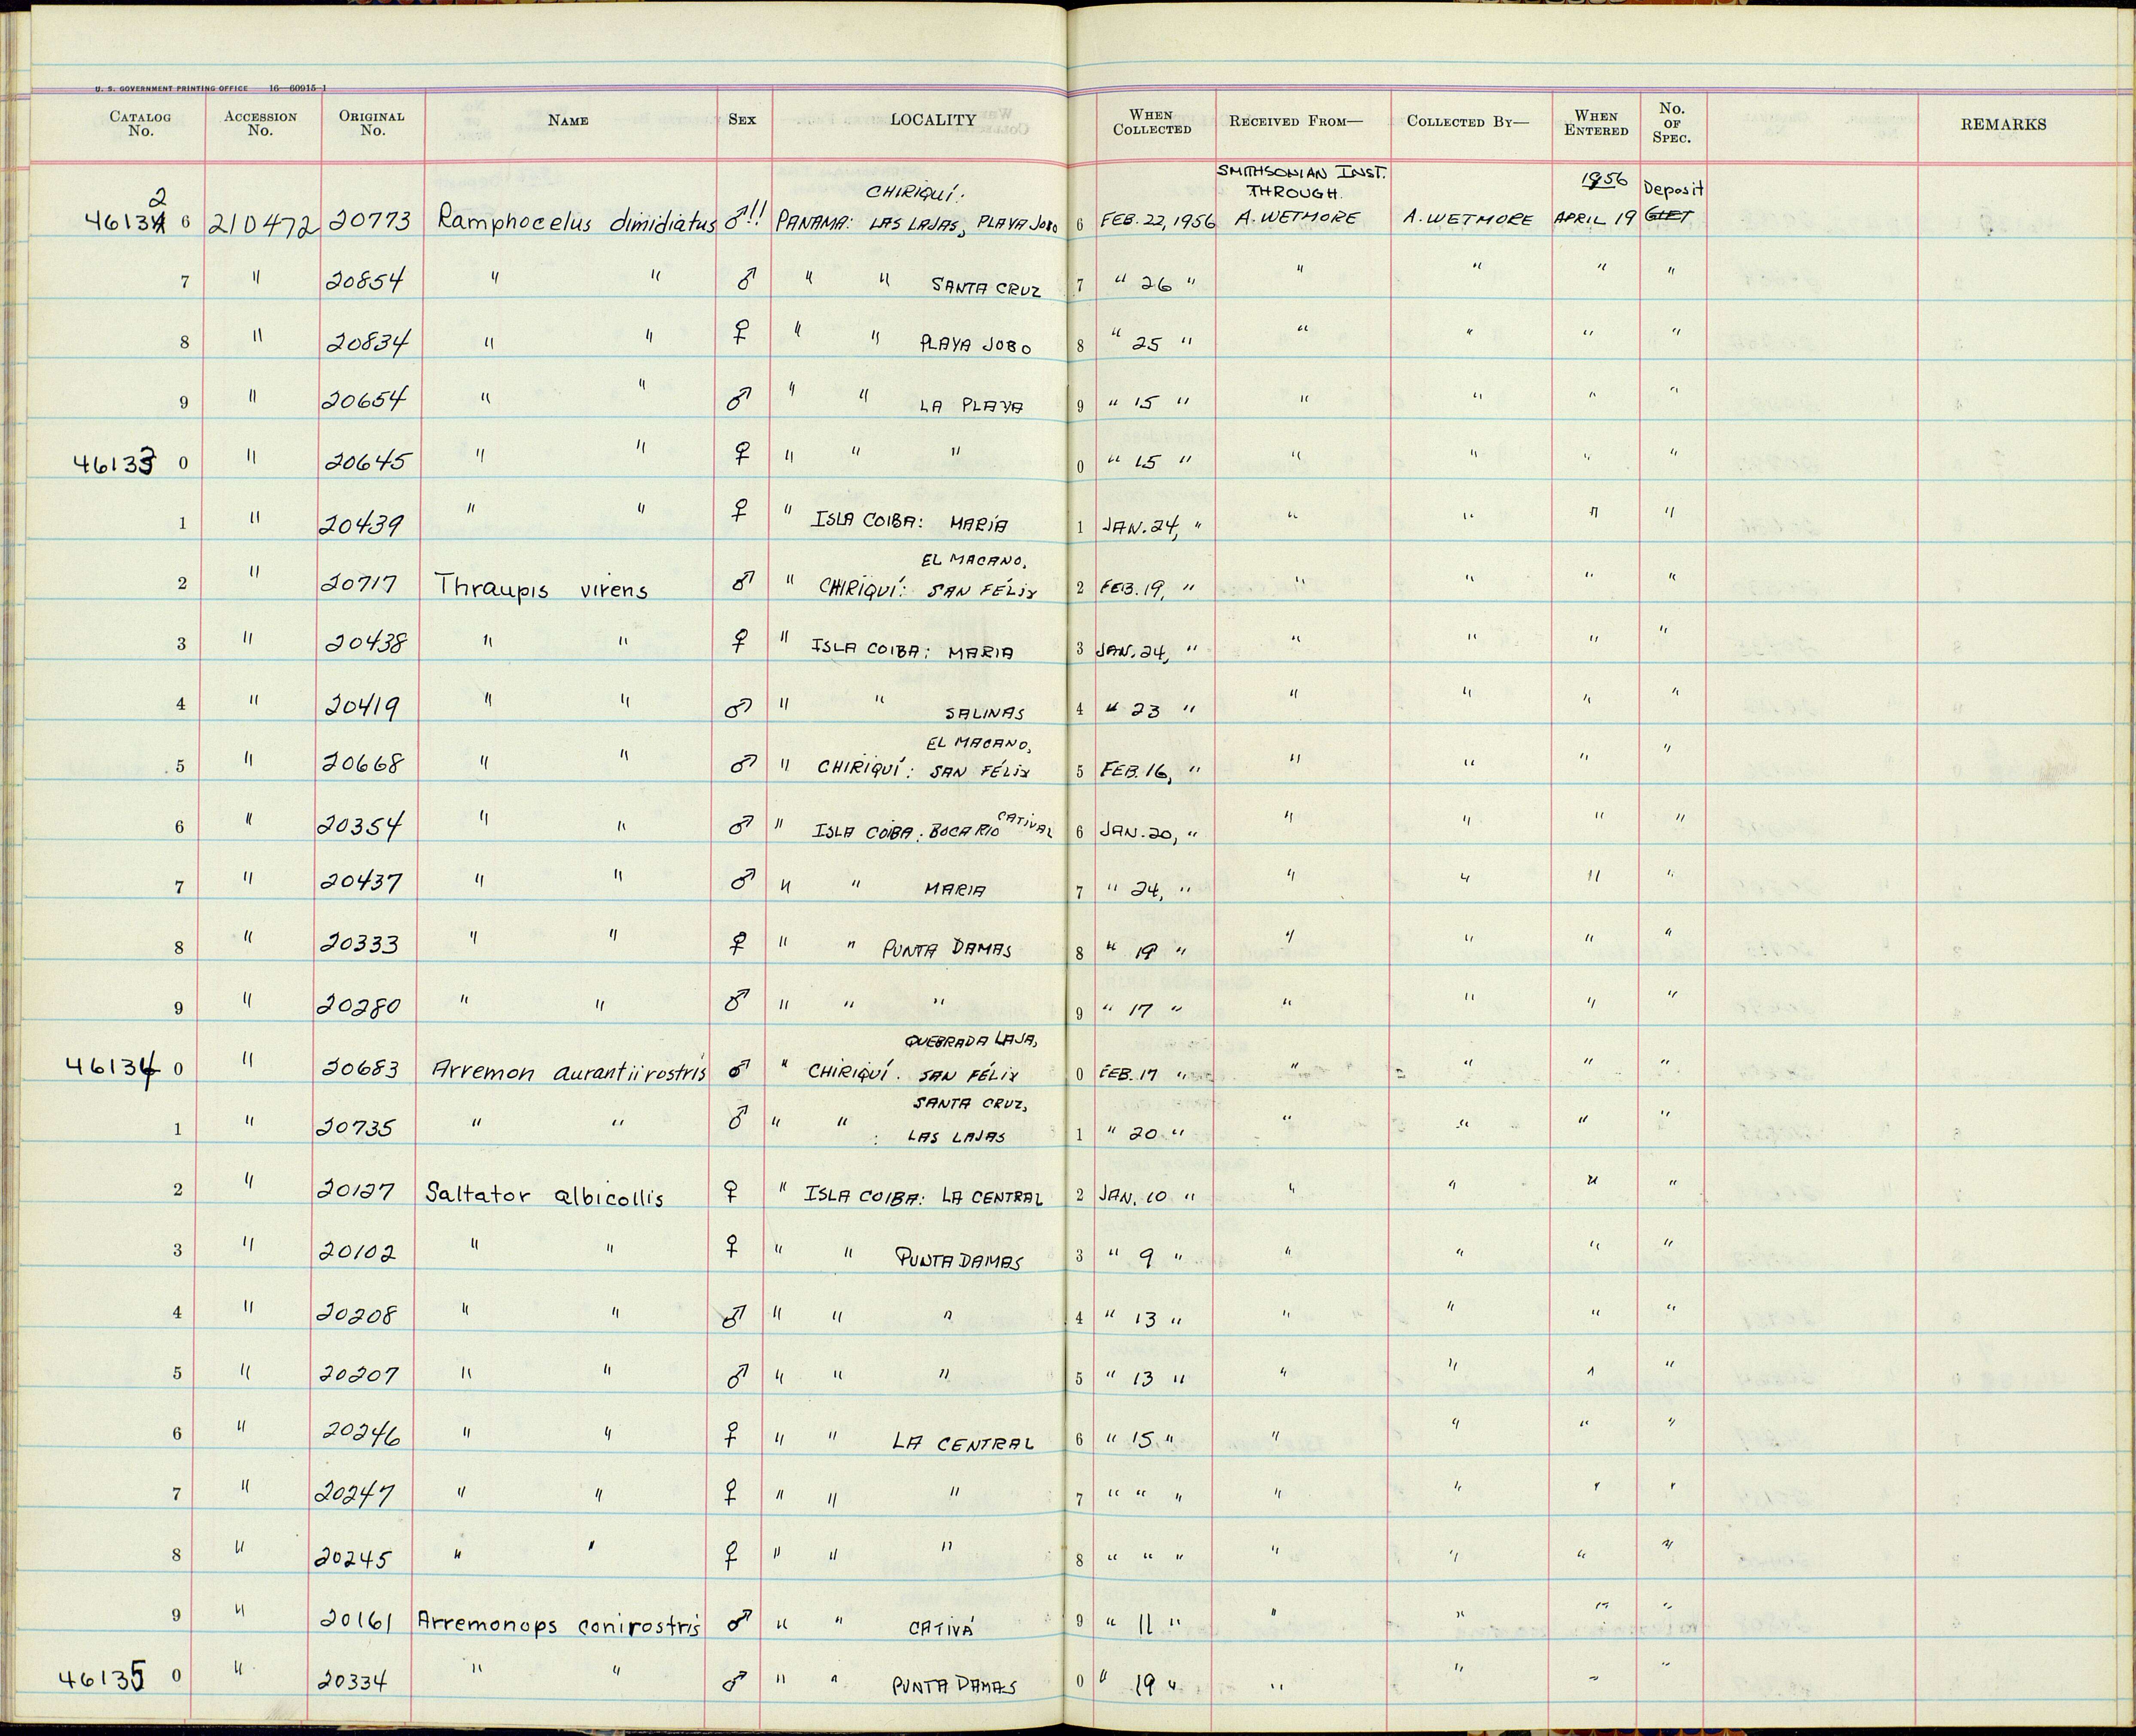 U. S. GOVERNMENT PRINTING OFFICE 16—60915-1
CATALOG No. ACCESSION No. ORIGINAL No. NAME SEX LOCALITY WHEN COLLECTED RECEIVED FROM— COLLECTED BY— WHEN ENTERED No. OF SPEC. REMARKS
2 CHIRIQUÍ: SMITHSONIAN INST. THROUGH 1956 Deposit
46132 6 210472 20773 Ramphocelus dimidiatus ♂!! PANAMA: LAS LAJAS, PLAYA JOBO 6 FEB. 22, 1956 A. WETMORE A. WETMORE APRIL 19 GIFT
7 " 20854 " " ♂ " " SANTA CRUZ 7 " 26 " " " " "
8 " 20834 " " ♀ " " PLAYA JOBO 8 " 25 " " " " "
9 " 20654 " " ♂ " " LA PLAYA 9 " 15 " " " " "
46133 0 " 20645 " " ♀ " " " 0 " 15 " " " " "
1 " 20439 " " ♀ " ISLA COIBA: MARÍA 1 JAN. 24, " " " " "
EL MACANO,
2 " 20717 Thraupis virens ♂ " CHIRIQUÍ: SAN FÉLIX 2 FEB. 19, " " " " "
3 " 20438 " " ♀ " ISLA COIBA: MARIA 3 JAN. 24, " " " " "
4 " 20419 " " ♂ " " SALINAS 4 " 23 " " " " "
EL MACANO,
5 " 20668 " " ♂ " CHIRIQUÍ: SAN FÉLIX 5 FEB. 16, " " " " "
6 " 20354 " " ♂ " ISLA COIBA: BOCA RIO CATIVAL 6 JAN. 20, " " " " "
7 " 20437 " " ♂ " " MARIA 7 " 24, " " " " "
8 " 20333 " " ♀ " " PUNTA DAMAS 8 " 19 " " " " "
9 " 20280 " " ♂ " " " 9 " 17 " " " " "
QUEBRADA LAJA,
46134 0 " 20683 Arremon aurantiirostris ♂ " CHIRIQUÍ. SAN FÉLIX 0 FEB. 17 " " " " "
SANTA CRUZ,
1 " 20735 " " ♂ " " : LAS LAJAS 1 " 20 " " " " "
2 " 20127 Saltator albicollis ♀ " ISLA COIBA: LA CENTRAL 2 JAN. 10 " " " " "
3 " 20102 " " ♀ " " PUNTA DAMAS 3 " 9 " " " " "
4 " 20208 " " ♂ " " " 4 " 13 " " " " "
5 " 20207 " " ♂ " " " 5 " 13 " " " " "
6 " 20246 " " ♀ " " LA CENTRAL 6 " 15 " " " " "
7 " 20247 " " ♀ " " " 7 " " " " " " "
8 " 20245 " " ♀ " " " 8 " " " " " " "
9 " 20161 Arremonops conirostris ♂ " " CATIVÁ 9 " 11 " " " " "
46135 0 " 20334 " " ♂ " " PUNTA DAMAS 0 " 19 " " " " "